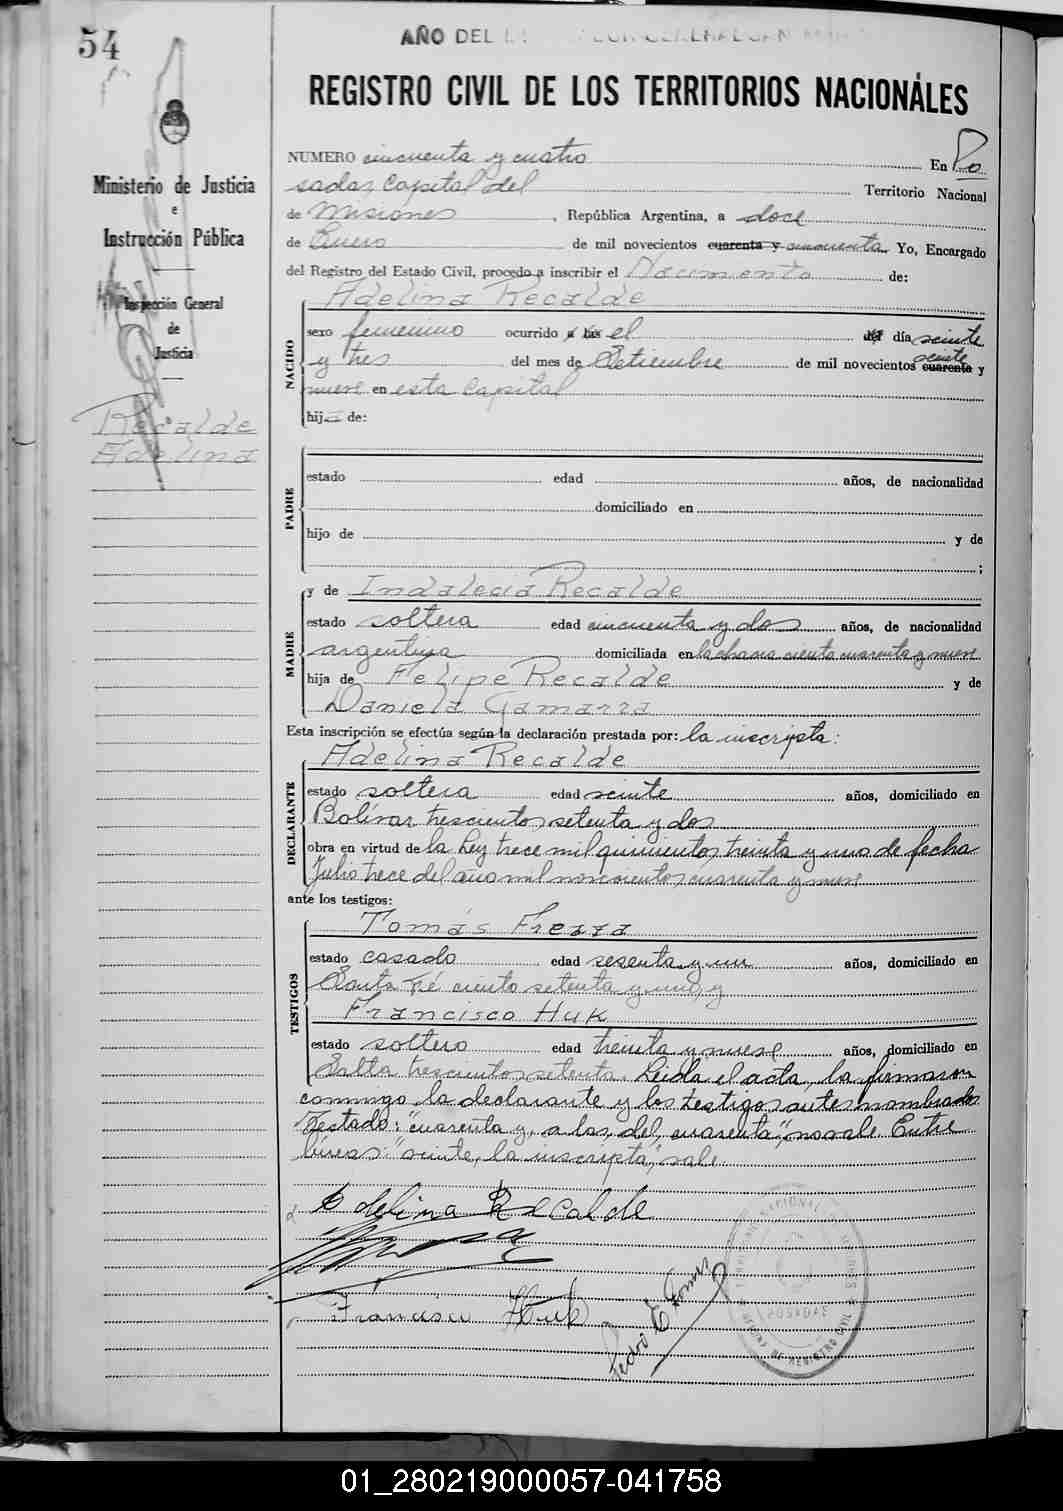 54
AÑO DEL
REGISTRO CIVIL DE LOS TERRITORIOS NACIONALES
Ministerio de Justicia
e
Instrucción Pública
Inspección General
de
Justicia
Recalde
Adelina
NUMERO cincuenta y cuatro En Po
sadas Capital del Territorio Nacional
de Misiones, República Argentina, a doce
de Enero de mil novecientos cuarenta y cincuenta. Yo, Encargado
del Registro del Estado Civil, procedo a inscribir el Nacimiento de:
Adelina Recalde
NACIDO
sexo femenino ocurrido a las el del día veinte
y tres del mes de Setiembre de mil novecientos cuarenta veinte y
nueve en esta Capital
hija de:
PADRE
estado edad años, de nacionalidad
domiciliado en
hijo de y de
;
MADRE
y de Indalecia Recalde
estado soltera edad cincuenta y dos años, de nacionalidad
argentina domiciliada en la chacra ciento cuarenta y nueve
hija de Felipe Recalde y de
Daniela Gamarra
Esta inscripción se efectúa según la declaración prestada por: la inscripta:
DECLARANTE
Adelina Recalde
estado soltera edad veinte años, domiciliado en
Bolívar trescientos setenta y dos
obra en virtud de la Ley trece mil quinientos treinta y uno de fecha
Julio trece del año mil novecientos cuarenta y nueve
ante los testigos:
TESTIGOS
Tomás Freaza
estado casado edad sesenta y un años, domiciliado en
Santa Fé ciento setenta y uno, y
Francisco Huk
estado soltero edad treinta y nueve años, domiciliado en
Salta trescientos setenta. Leída el acta, la firmaron
conmigo la declarante y los testigos antes nombrados
Testado: "cuarenta y, a las, del, cuarenta", no vale. Entre
líneas: "veinte, la inscripta", vale.
Adelina Recalde
Francisco Huk
Pedro E
OFICINA DE REGISTRO CIVIL
01_280219000057-041758